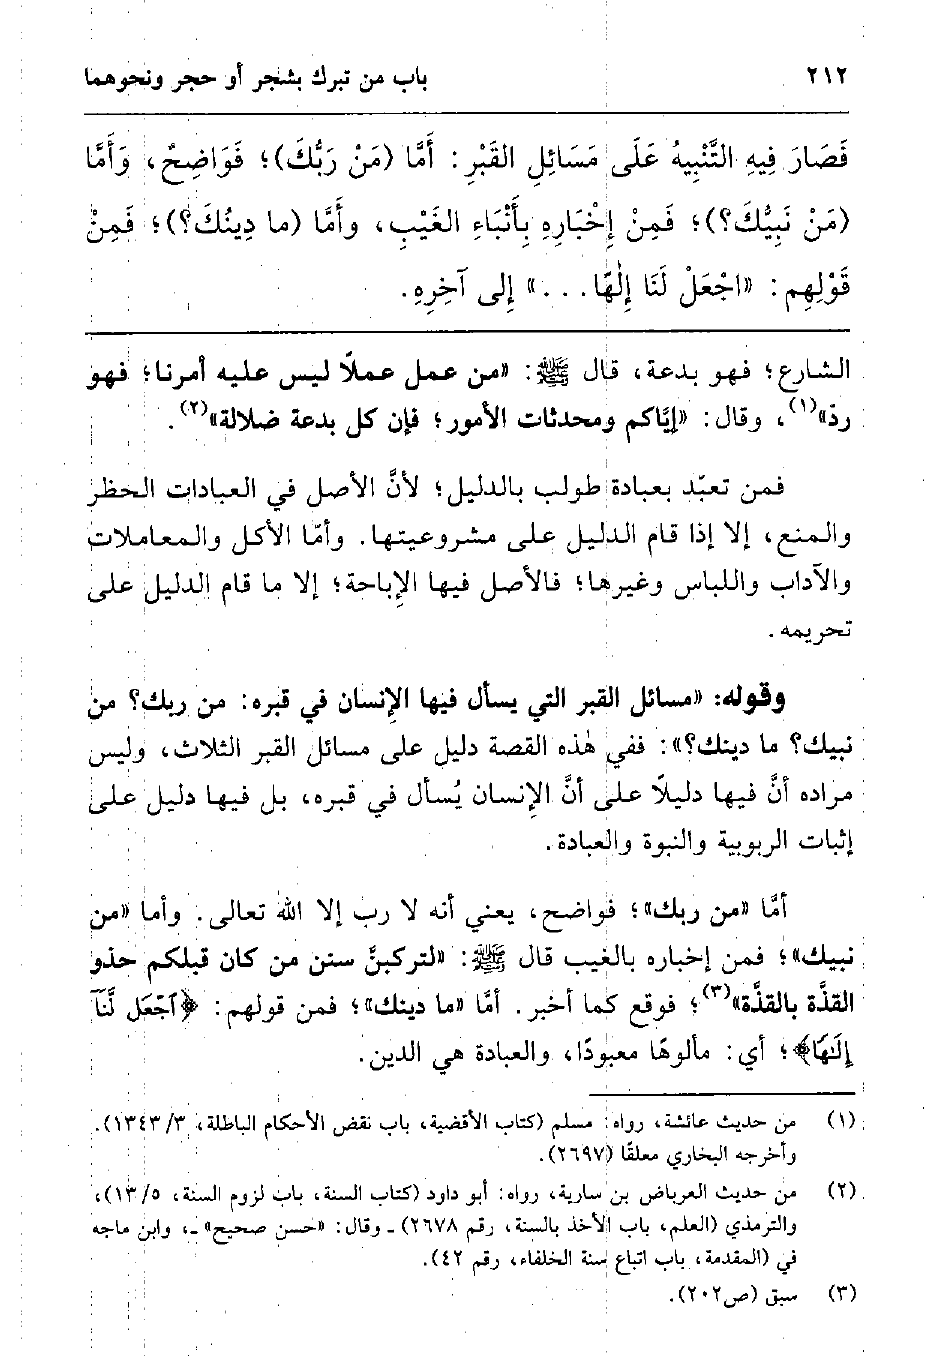 ٢١٢ باب من تبرك بشجر أو حجر ونحوهما
فَصَارَ فِيهِ التَّنْبِيهُ عَلَى مَسَائِلِ القَبْرِ: أَمَّا (مَنْ رَبُّكَ)؛ فَوَاضِحٌ، وَأَمَّا
(مَنْ نَبِيُّكَ؟)؛ فَمِنْ إِخْبَارِهِ بِأَنْبَاءِ الغَيْبِ، وأَمَّا (ما دِينُكَ؟)؛ فَمِنْ
قَوْلِهِم: «اجْعَلْ لَنَا إِلٰهًا. . .» إِلى آخِرِهِ.
الشارع؛ فهو بدعة، قال ﷺ: «من عمل عملًا ليس عليه أمرنا؛ فهو
رد»(١)، وقال: «إيَّاكم ومحدثات الأمور؛ فإن كل بدعة ضلالة»(٢).
فمن تعبّد بعبادة طولب بالدليل؛ لأنَّ الأصل في العبادات الحظر
والمنع، إلا إذا قام الدليل على مشروعيتها. وأمّا الأكل والمعاملات
والآداب واللباس وغيرها؛ فالأصل فيها الإباحة؛ إلا ما قام الدليل على
تحريمه.
وقوله: «مسائل القبر التي يسأل فيها الإنسان في قبره: من ربك؟ من
نبيك؟ ما دينك؟»: ففي هٰذه القصة دليل على مسائل القبر الثلاث، وليس
مراده أنَّ فيها دليلًا على أنَّ الإنسان يُسأل في قبره، بل فيها دليل على
إثبات الربوبية والنبوة والعبادة.
أمَّا «من ربك»؛ فواضح، يعني أنه لا رب إلا الله تعالى. وأما «من
نبيك»؛ فمن إخباره بالغيب قال ﷺ: «لتركبنَّ سنن من كان قبلكم حذو
القذَّة بالقذَّة»(٣)؛ فوقع كما أخبر. أمَّا «ما دينك»؛ فمن قولهم: ﴿ٱجْعَل لَّنَآ
إِلَـٰهًا﴾؛ أي: مألوهًا معبودًا، والعبادة هي الدين.
(١) من حديث عائشة، رواه: مسلم (كتاب الأقضية، باب نقض الأحكام الباطلة، ٣/ ١٣٤٣).
وأخرجه البخاري معلقًا (٢٦٩٧).
(٢) من حديث العرباض بن سارية، رواه: أبو داود (كتاب السنة، باب لزوم السنة، ٥/ ١٣)،
والترمذي (العلم، باب الأخذ بالسنة، رقم ٢٦٧٨) ـ وقال: «حسن صحيح» ـ، وابن ماجه
في (المقدمة، باب اتباع سنة الخلفاء، رقم ٤٢).
(٣) سبق (ص٢٠٢).